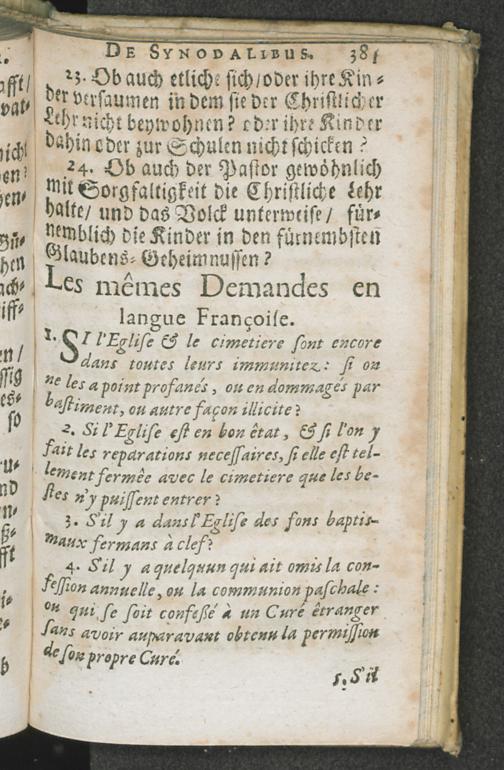 DE SYNODALIBUS. 381
23. Ob auch etliche sich/oder ihre Kin-
der versaumen in dem sie der Christlicher
Lehr nicht beywohnen? oder ihre Kinder
dahin oder zur Schulen nicht schicken?
24. Ob auch der Pastor gewöhnlich
mit Sorgfaltigkeit die Christliche Lehr
halte/ und das Volck unterweise/ für-
nemblich die Kinder in den fürnembsten
Glaubens-Geheimnussen?
Les mêmes Demandes en
langue Françoise.
1. SI l'Eglise & le cimetiere sont encore
dans toutes leurs immunitez: si on
ne les a point profanés, ou en dommagés par
bastiment, ou autre façon illicite?
2. Si l'Eglise est en bon êtat, & si l'on y
fait les reparations necessaires, si elle est tel-
lement fermée avec le cimetiere que les be-
stes n'y puissent entrer?
3. S'il y a dans l'Eglise des fons baptis-
maux fermans à clef?
4. S'il y a quelquun qui ait omis la con-
fession annuelle, ou la communion paschale:
ou qui se soit confeßé à un Curé êtranger
sans avoir auparavant obtenu la permission
de son propre Curé.
5. S'il